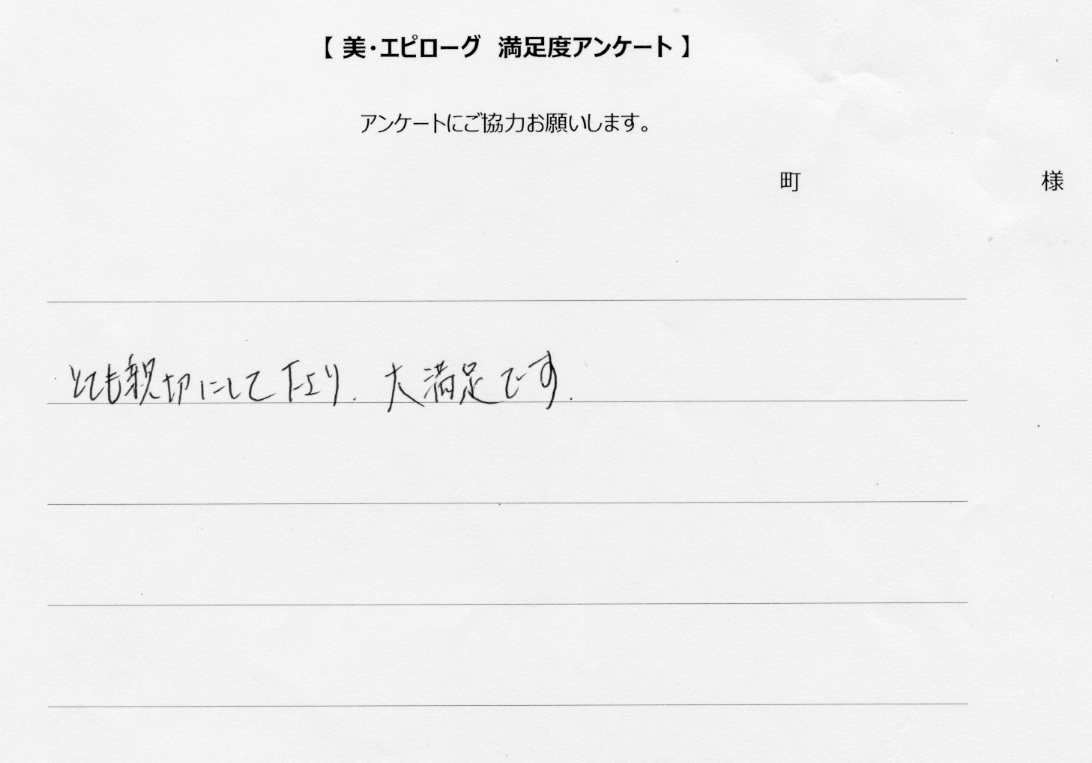 【 美・エピローグ 満足度アンケート 】
アンケートにご協力お願いします。
町 様
とても親切にして下さり、大満足です。